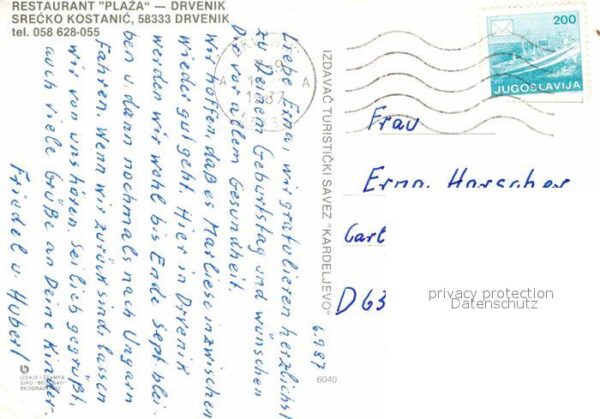 RESTAURANT "PLAŽA" — DRVENIK
SREĆKO KOSTANIĆ, 58333 DRVENIK
tel. 058 628-055
6.9.87
Liebe Erna, wir gratulieren herzlichst
zu Deinem Geburtstag und wünschen
Dir vor allem Gesundheit.
Wir hoffen, daß es Marliese inzwischen
wieder gut geht. Hier in Drvenik
werden wir wohl bis Ende Sept. blei-
ben u. dann nochmals nach Ungarn
fahren. Wenn wir zurück sind, lassen
wir von uns hören. Sei lich gegrüßt,
auch viele Grüße an Deine Kinder.
Friedel u. Hubert
IZDAVAČ TURISTIČKI SAVEZ "KARDELJEVO"
6040
200
JUGOSLAVIJA
A
A
1987
Frau
Erna Harscher
Carl
D 63
privacy protection
Datenschutz